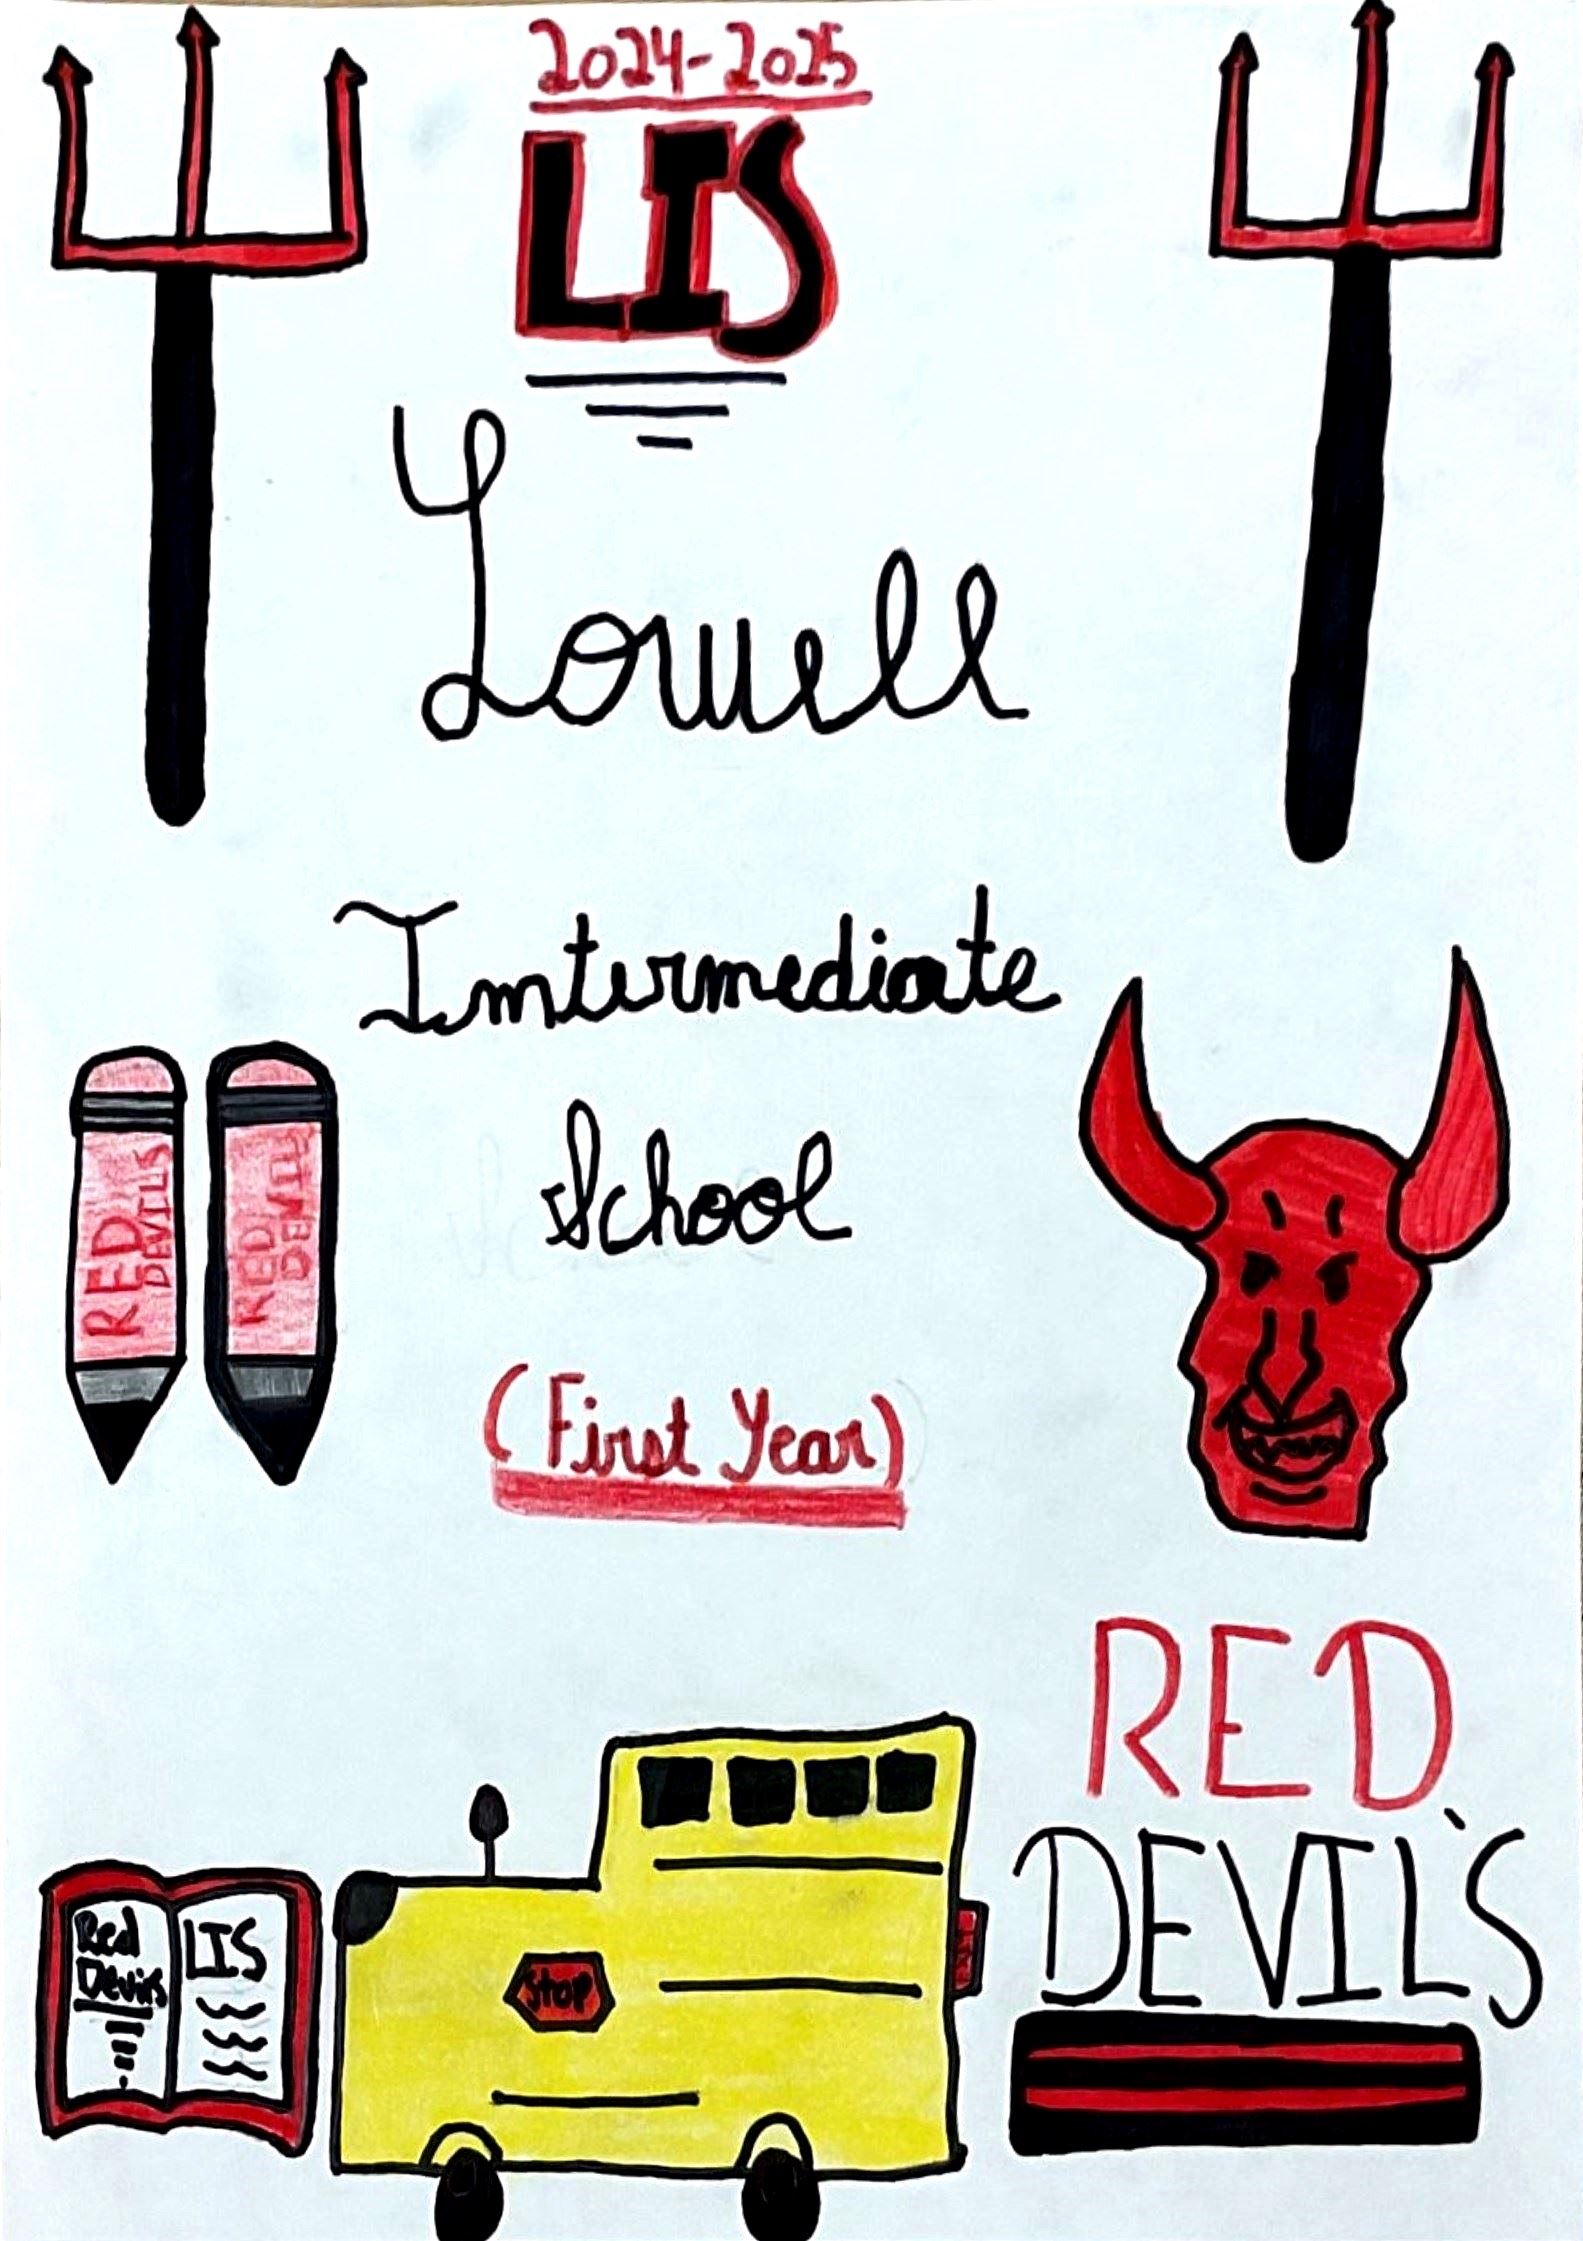 2024-2025
LIS
Lowell
Intermediate
School
(First Year)
RED
DEVILS
RED
DEVILS
RED
DEVIL'S
Stop
Red
Devils
LIS